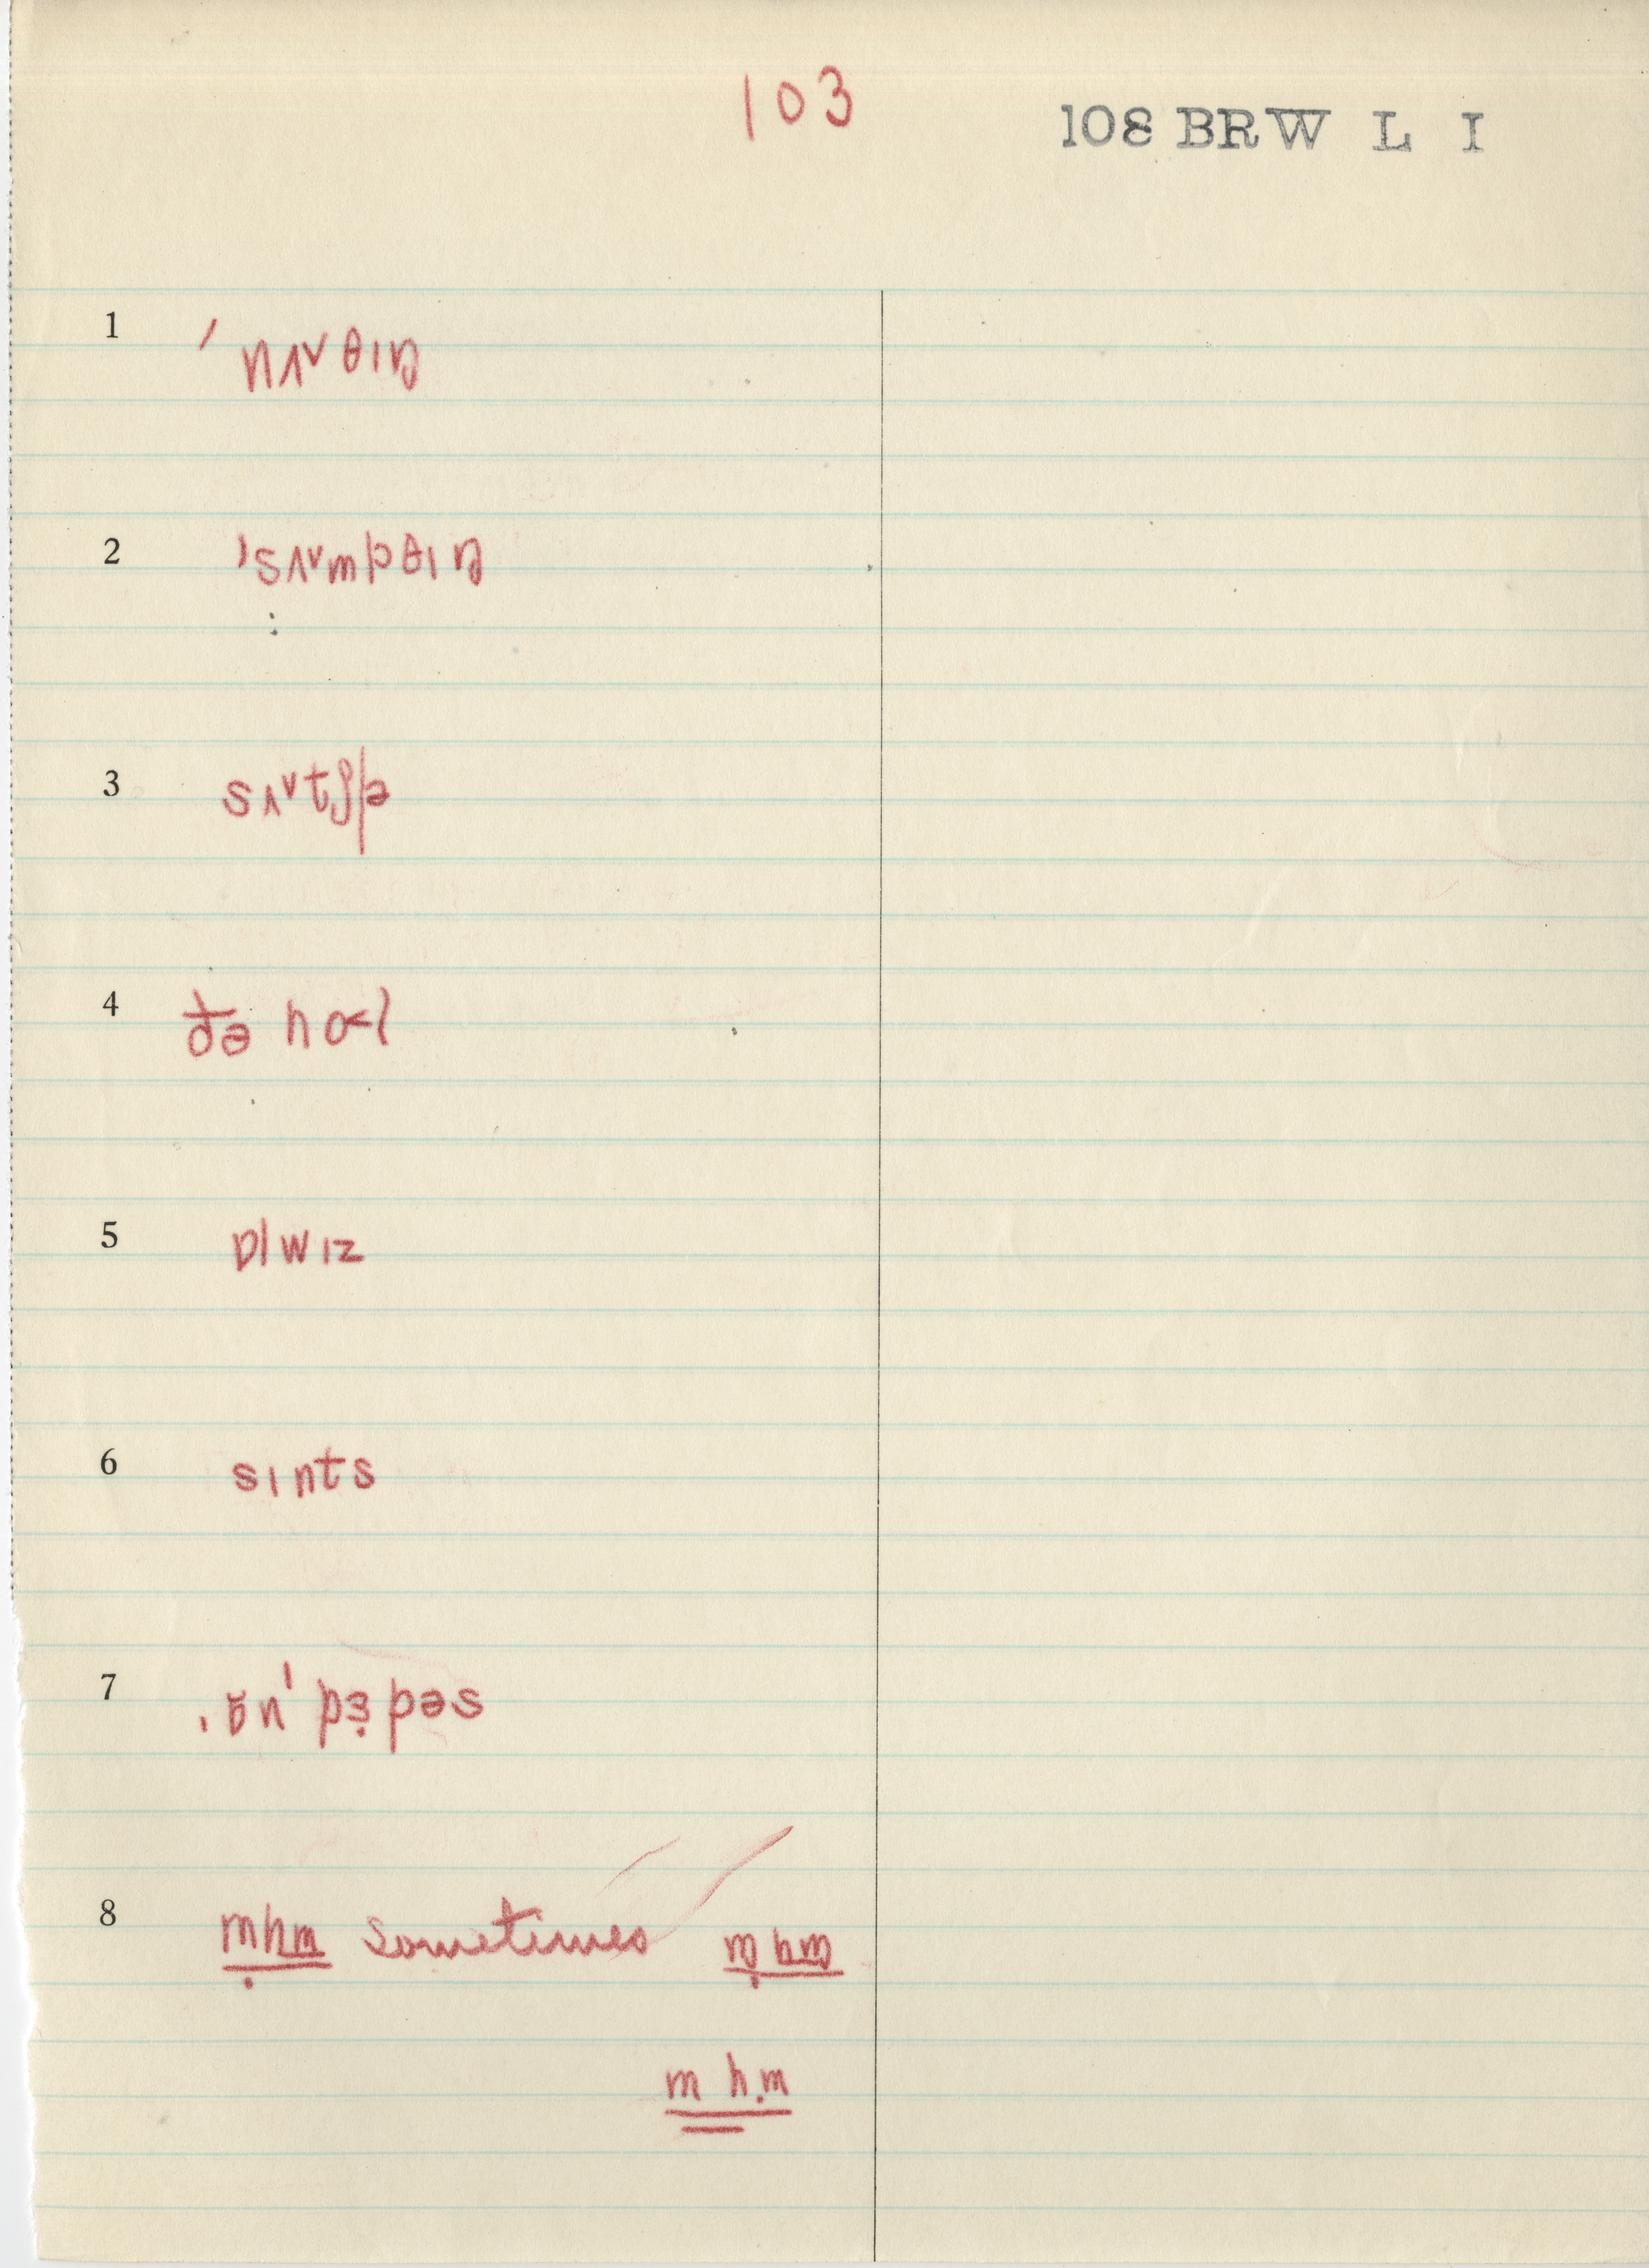 103
108 BRW L I
1 ˈnʌ˅θɪŋ
2 ˈsʌ˅mpθɪŋ
3 sʌ˅tʃə
4 ðə hoˑl
5 ɒlwɪz
6 sɪnts
7 ˌɒ̆nˈpɜ̣pəs
8 ṃhm sometimes ṃhm
m hṃ